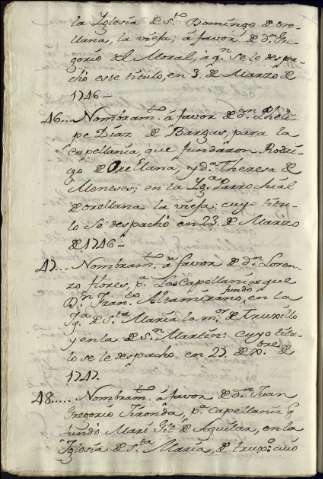 la Iglesia de Sto. Domingo de ore-
llana, la vieja; à favor de Dn. Gre-
gorio del Moral, à qn. se le despa-
chó ese titulo, en 3. de Marzo de
1746_
46... Nombramto. à favor de Dn. Pheli-
pe Diaz de Bargas, para la
capellania, que fundaron Rodri-
go de Orellana, y Da. Theresa de
Meneses; en la Iga. Parrochial
de orellana la vieja; cuyo titu-
lo se despachó en 23. de Marzo
de 1746_
47... Nombramto. à favor de Dn. Loren-
zo flores, pa. las Capellanias que
Dn. Franco. Altamirano, fundó en la
Iga. de Sta. Maria la mor. de truxillo
y en la de Sn. Martin: cuyo titu-
lo se le despachó en 27 de Xbre. de
1747.
48.... Nombramto. à favor de Dn. Juan
Gregorio pa. capellania q
fundó Mari Gil de Aguilar, en la
Iglesia de Sta. Maria, de truxo: cuio